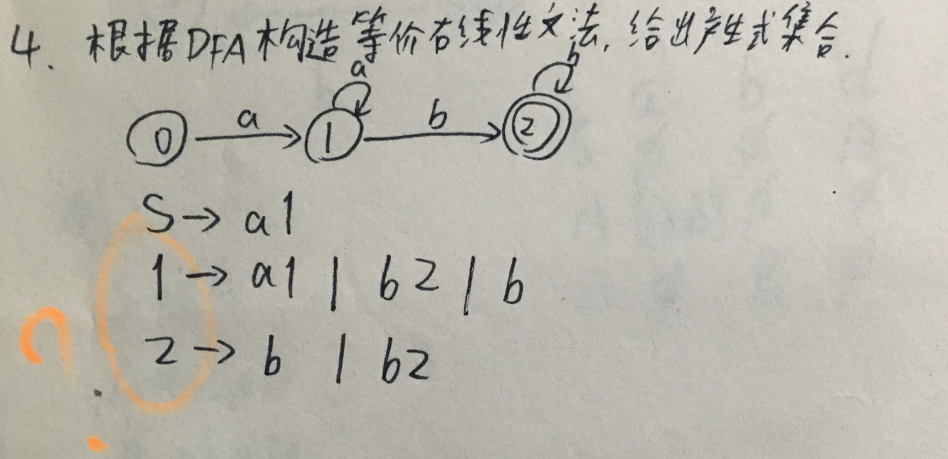 4. 根据DFA构造等价右线性文法, 给出产生式集合.
a b
0 a 1 b 2
S → a1
1 → a1 | b2 | b
2 → b | b2
?